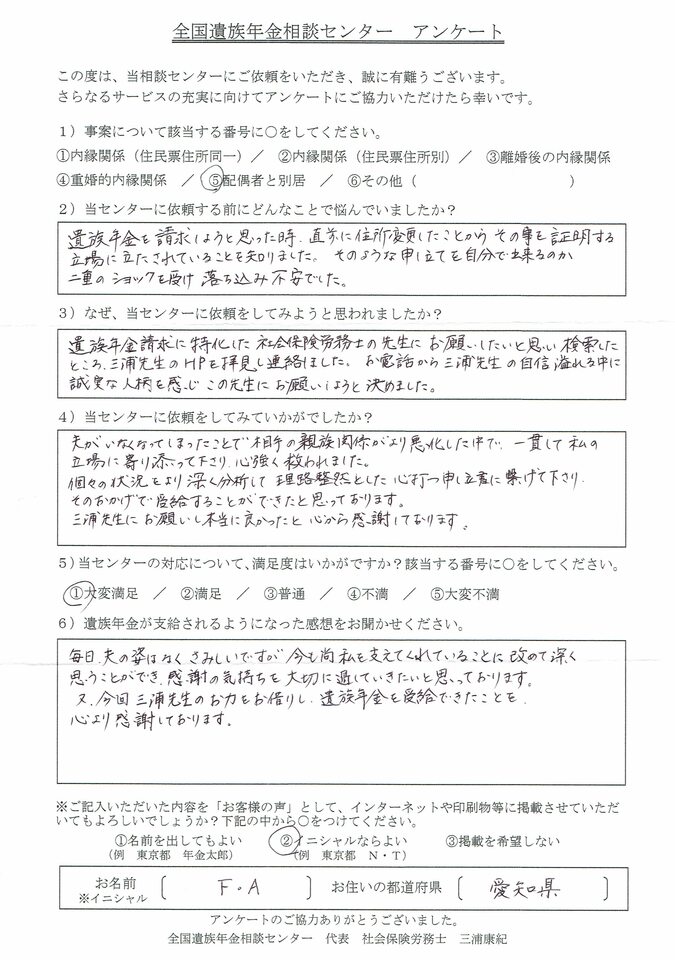 全国遺族年金相談センター　アンケート
この度は、当相談センターにご依頼をいただき、誠に有難うございます。
さらなるサービスの充実に向けてアンケートにご協力いただけたら幸いです。
１）事案について該当する番号に○をしてください。
①内縁関係（住民票住所同一）／　②内縁関係（住民票住所別）／　③離婚後の内縁関係
④重婚的内縁関係　／　⑤配偶者と別居　／　⑥その他（　　　　　　　　　　）
２）当センターに依頼する前にどんなことで悩んでいましたか？
遺族年金を請求しようと思った時、直前に住所変更したことからその事を証明する
立場に立たされていることを知りました。そのような申し立てを自分で出来るのか
二重のショックを受け落ち込み不安でした。
３）なぜ、当センターに依頼をしてみようと思われましたか？
遺族年金請求に特化した社会保険労務士の先生にお願いしたいと思い検索した
ところ、三浦先生のHPを拝見し連絡しました。お電話から三浦先生の自信溢れる中に
誠実な人柄を感じこの先生にお願いしようと決めました。
４）当センターに依頼をしてみていかがでしたか？
夫がいなくなってしまったことで相手の親族関係がより悪化した中で、一貫して私の
立場に寄り添って下さり、心強く救われました。
個々の状況をより深く分析して理路整然とした心打つ申立書に繋げて下さり、
そのおかげで受給することができたと思っております。
三浦先生にお願いし本当に良かったと心から感謝しております。
５）当センターの対応について、満足度はいかがですか？該当する番号に○をしてください。
①大変満足　／　②満足　／　③普通　／　④不満　／　⑤大変不満
６）遺族年金が支給されるようになった感想をお聞かせください。
毎日、夫の姿はなくさみしいですが今も尚私を支えてくれていることに改めて深く
思うことができ、感謝の気持ちを大切に過していきたいと思っております。
又、今回三浦先生のお力をお借りし、遺族年金を受給できたことを、
心より感謝しております。
※ご記入いただいた内容を「お客様の声」として、インターネットや印刷物等に掲載させていただ
いてもよろしいでしょうか？下記の中から○をつけてください。
①名前を出してもよい　②イニシャルならよい　③掲載を希望しない
（例　東京都　年金太郎）　（例　東京都　Ｎ・Ｔ）
お名前　〔　F・A　〕　お住いの都道府県　〔　愛知県　〕
※イニシャル
アンケートのご協力ありがとうございました。
全国遺族年金相談センター　代表　社会保険労務士　三浦康紀